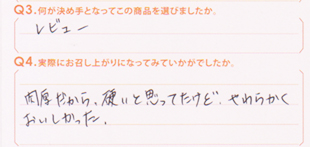 Q3.何が決め手となってこの商品を選びましたか。
レビュー
Q4.実際にお召し上がりになってみていかがでしたか。
肉厚だから、硬いと思ってたけど、やわらかく
おいしかった。